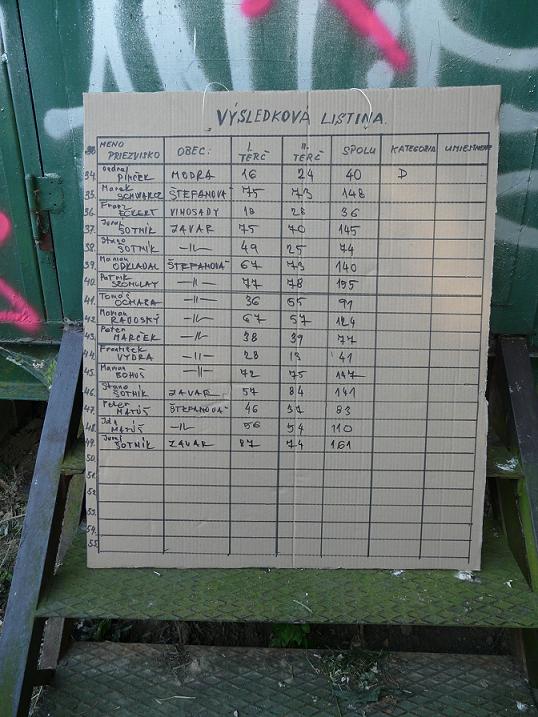 VÝSLEDKOVÁ LISTINA
MENO PRIEZVISKO OBEC: I. TERČ II. TERČ SPOLU KATEGORIA UMIESTNENIE
34. Ondrej MODRA 16 24 40 D
35. Marek SCHWARCZ ŠTEFANOVÁ 75 73 148
36. Franz ECKERT VINOSADY 10 26 36
37. Juraj SOTNÍK ZAVAR 75 70 145
38. Stano SOTNÍK -11- 49 25 74
39. Marian ODKLADAL ŠTEFANOVÁ 67 73 140
40. Patrik -11- 77 78 155
41. Tomáš OCHABA -11- 36 55 91
42. Roman RADOSKÝ -11- 67 57 124
43. Peter MARČEK -11- 38 39 77
44. František VYDRA -11- 28 13 41
45. Marian BOHUŠ -11- 72 75 147
46. Stano SOTNÍK ZAVAR 57 84 141
47. Peter MATÚŠ ŠTEFANOVÁ 46 37 83
48. Ida MATÚŠ -11- 56 54 110
49. Juraj SOTNÍK ZAVAR 87 74 161
50.
51.
52.
53.
54.
55.